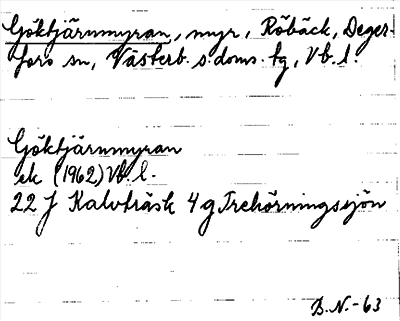 Göktjärnmyran, myr, Röbäck, Deger-
fors sn, Västerb. s. doms. tg, Vb. l.
Göktjärnmyran
ek (1962) Vb. l.
22 J Kalvträsk 4 g Trehörningssjön
B.N.-63